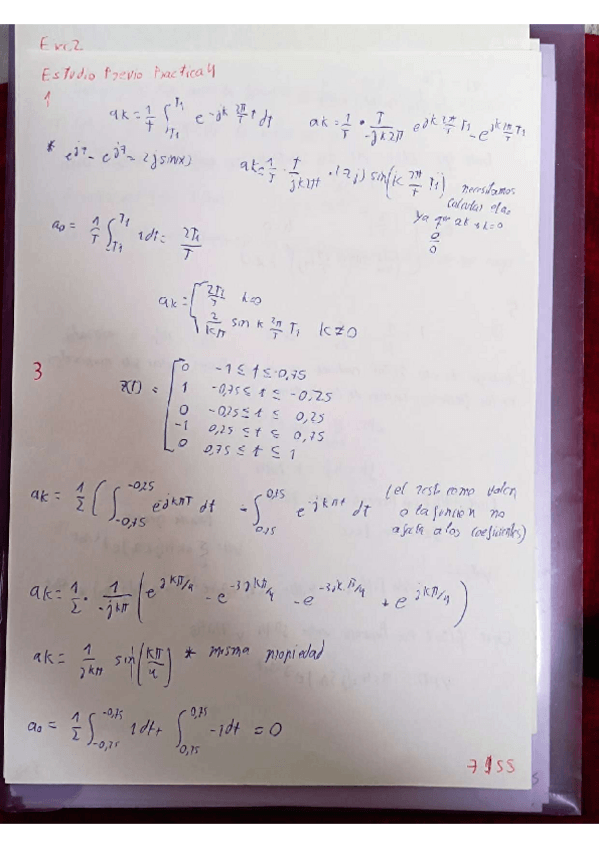 Eric2
Estudio Previo Practica 4
1
ak = 1/T ∫_{-T1}^{T1} e^{-jk 2π/T t} dt    ak = 1/T · T/(-jk2π) e^{jk 2π/T T1} - e^{jk 2π/T T1}
* e^{j?} - e^{j?} = 2j sin(x)    ak = 1/T · T/(jk2π) · (2j) sin(k 2π/T T1)
necesitamos
calcular el a0
ya que ak si k=0
0/0
a0 = 1/T ∫_{-T1}^{T1} 1dt = 2T1/T
ak = { 2T1/T  k=0
2/(kπ) sin k 2π/T T1  k≠0
3
x(t) = { 0  -1 ≤ t ≤ -0,75
1  -0,75 ≤ t ≤ -0,25
0  -0,25 ≤ t ≤ 0,25
-1  0,25 ≤ t ≤ 0,75
0  0,75 ≤ t ≤ 1
ak = 1/2 ( ∫_{-0,75}^{-0,25} e^{-jkπt} dt - ∫_{0,25}^{0,75} e^{-jkπt} dt  (el resto como valen
0 la funcion no
afecta a los coeficientes)
ak = 1/2 · 1/(-jkπ) ( e^{jkπ/4} - e^{-3jkπ/4} - e^{-3jkπ/4} + e^{jkπ/4} )
ak = 1/(jkπ) sin(kπ/4)  * misma propiedad
a0 = 1/2 ∫_{-0,75}^{-0,25} 1dt + ∫_{0,25}^{0,75} -1dt = 0